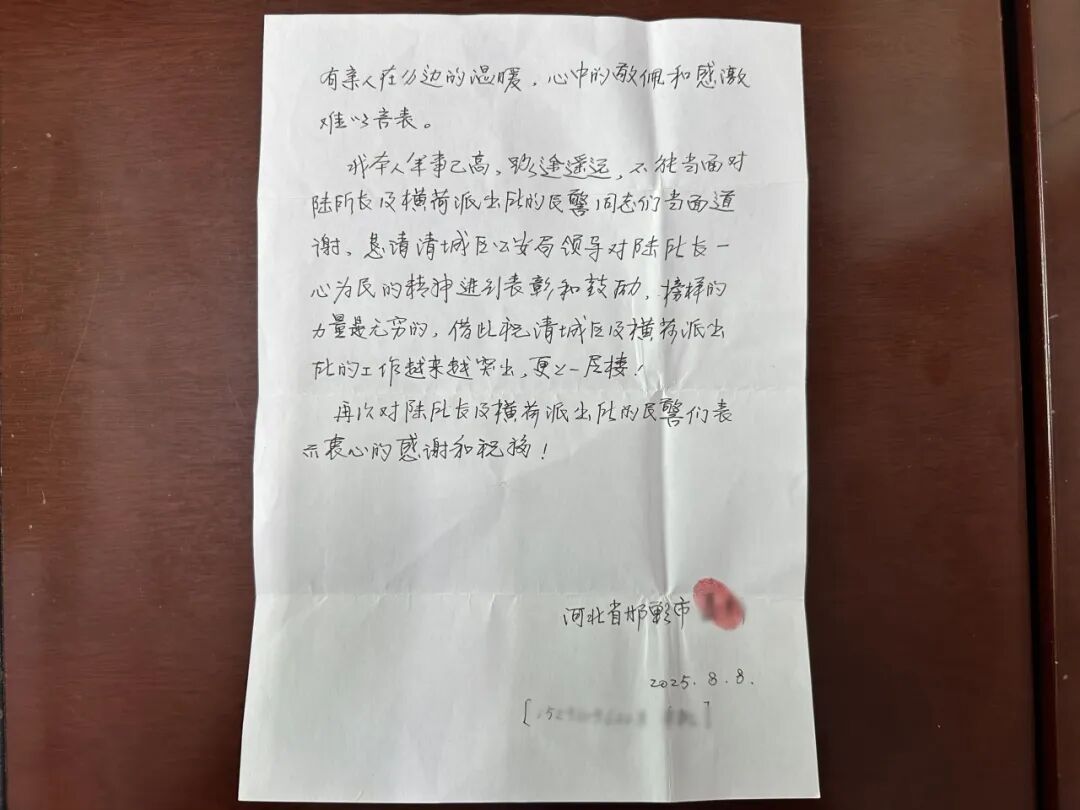 有亲人在身边的温暖，心中的敬佩和感激
难以言表。
我本人年事已高，路途遥远，不能当面对
陆所长及横荷派出所的民警同志们当面道
谢，恳请清城区公安局领导对陆所长一
心为民的精神进行表彰和鼓励，榜样的
力量是无穷的，借此祝清城区及横荷派出
所的工作越来越突出，更上一层楼！
再次对陆所长及横荷派出所的民警们表
示衷心的感谢和祝福！
河北省邯郸市
2025.8.8.